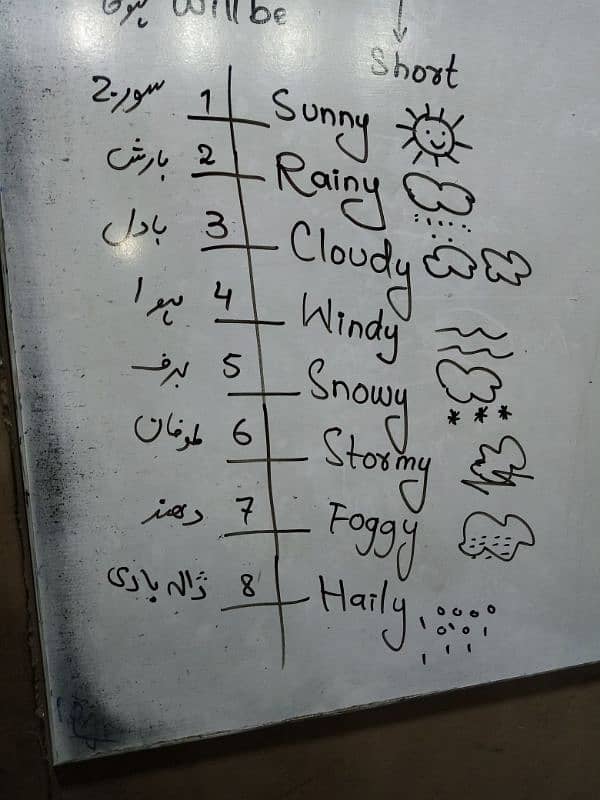 ہوگا will be
Short
سورج 1 Sunny
بارش 2 Rainy
بادل 3 Cloudy
ہوا 4 Windy
برف 5 Snowy
طوفان 6 Stormy
دھند 7 Foggy
ژالہ باری 8 Haily